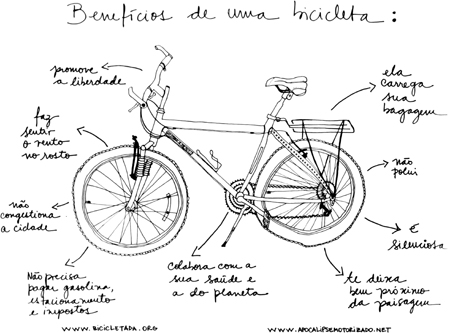 Benefícios de uma bicicleta:
promove
a liberdade
ela
carrega
sua
bagagem
faz
sentir
o vento
no rosto
não
polui
não
congestiona
a cidade
é
silenciosa
Não precisa
pagar gasolina,
estacionamento
e impostos
colabora com a
sua saúde e
a do planeta
te deixa
bem próximo
da paisagem
www.bicicletada.org
www.apocalipsemotorizado.net